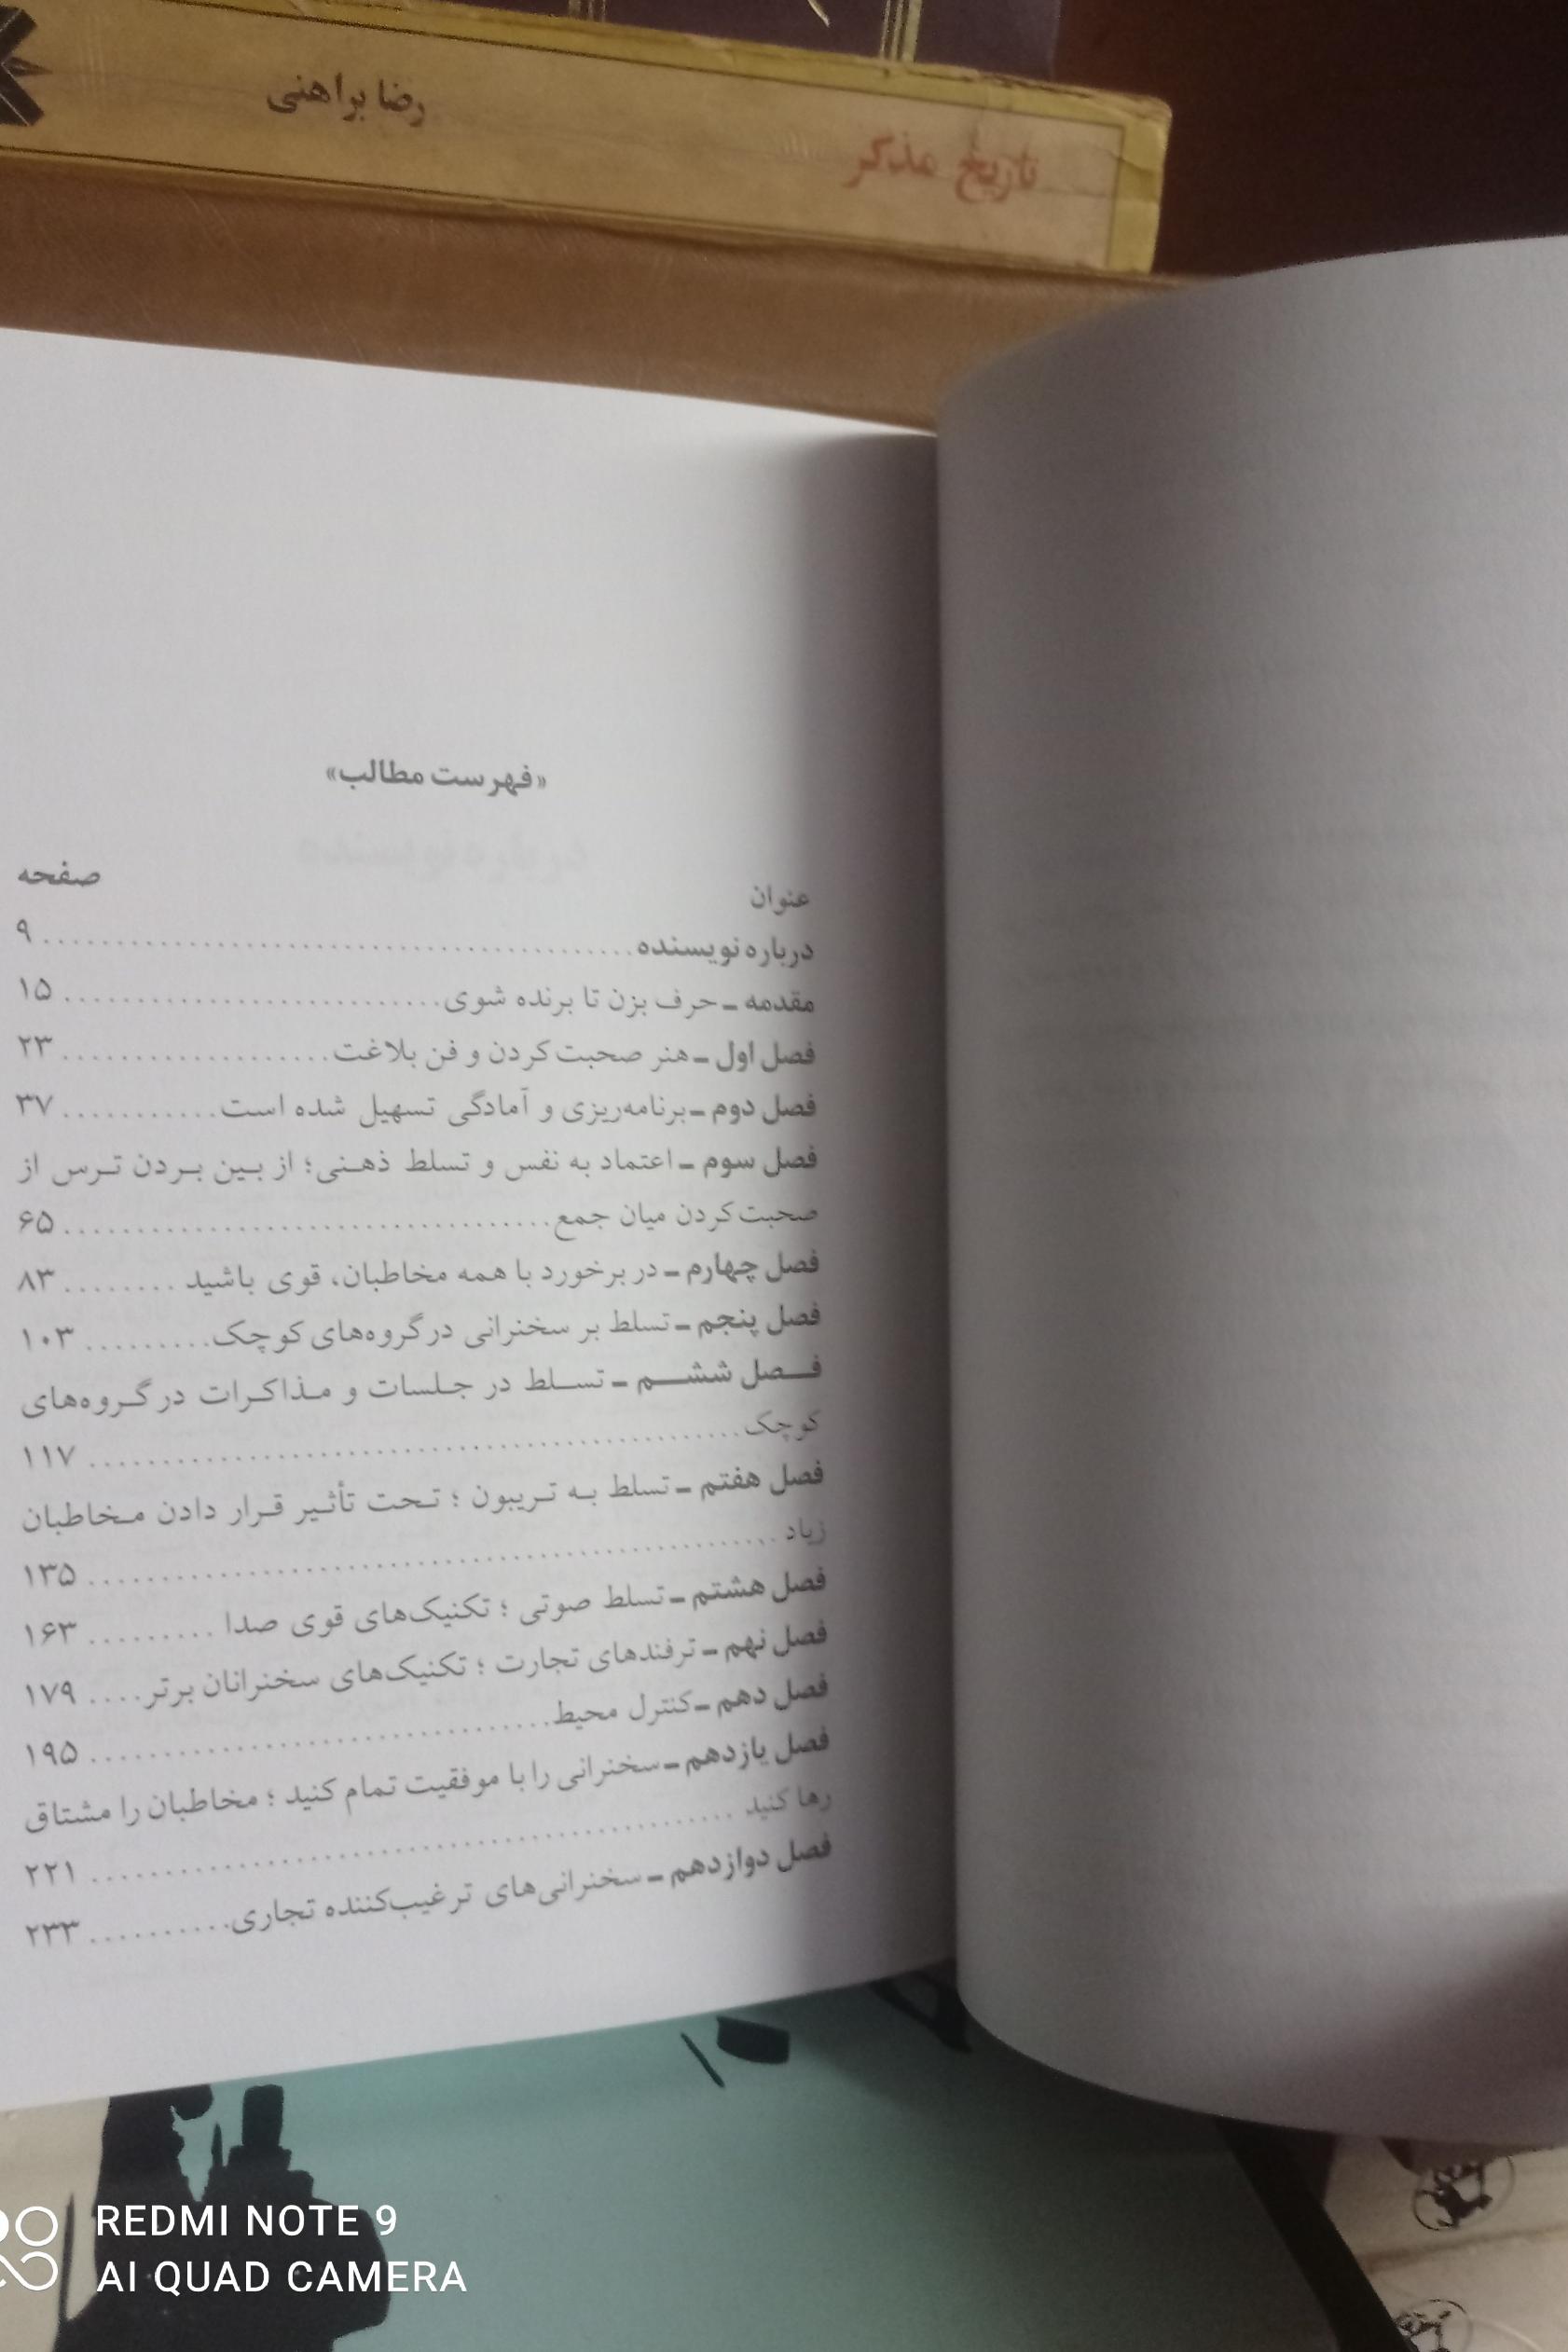 تاریخ مذکر
رضا براهنی
«فهرست مطالب»
عنوان صفحه
درباره نویسنده ........ ۹
مقدمه ـ حرف بزن تا برنده شوی ........ ۱۵
فصل اول ـ هنر صحبت کردن و فن بلاغت ........ ۲۳
فصل دوم ـ برنامه‌ریزی و آمادگی تسهیل شده است ........ ۳۷
فصل سوم ـ اعتماد به نفس و تسلط ذهنی؛ از بین بردن ترس از
صحبت کردن میان جمع ........ ۶۵
فصل چهارم ـ در برخورد با همه مخاطبان، قوی باشید ........ ۸۳
فصل پنجم ـ تسلط بر سخنرانی در گروه‌های کوچک ........ ۱۰۳
فصل ششم ـ تسلط در جلسات و مذاکرات در گروه‌های
کوچک ........ ۱۱۷
فصل هفتم ـ تسلط به تریبون ؛ تحت تأثیر قرار دادن مخاطبان
زیاد ........ ۱۳۵
فصل هشتم ـ تسلط صوتی ؛ تکنیک‌های قوی صدا ........ ۱۶۳
فصل نهم ـ ترفندهای تجارت ؛ تکنیک‌های سخنرانان برتر .... ۱۷۹
فصل دهم ـ کنترل محیط ........ ۱۹۵
فصل یازدهم ـ سخنرانی را با موفقیت تمام کنید ؛ مخاطبان را مشتاق
رها کنید ........ ۲۲۱
فصل دوازدهم ـ سخنرانی‌های ترغیب‌کننده تجاری ........ ۲۳۳
REDMI NOTE 9
AI QUAD CAMERA